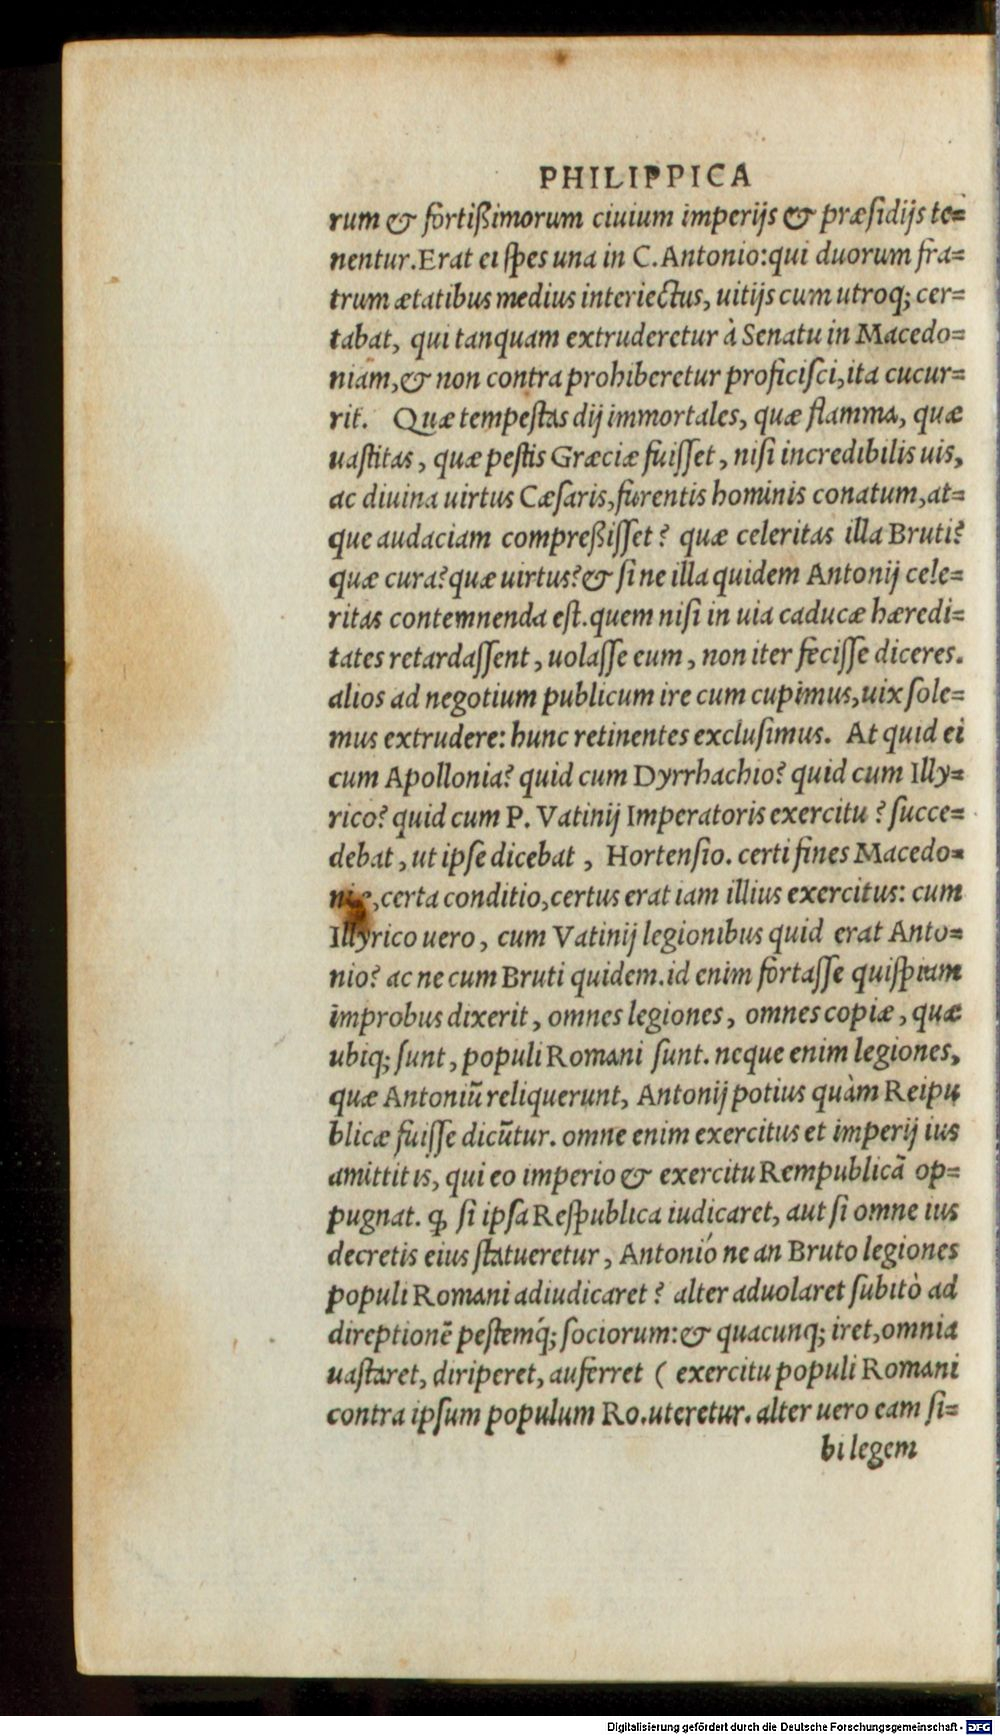 PHILIPPICA
rum & fortißimorum ciuium imperijs & præsidijs te=
nentur. Erat ei spes una in C. Antonio: qui duorum fra=
trum ætatibus medius interiectus, uitijs cum utroq; cer=
tabat, qui tanquam extruderetur à Senatu in Macedo=
niam, & non contra prohiberetur proficisci, ita cucur=
rit. Quæ tempestas dij immortales, quæ flamma, quæ
uastitas, quæ pestis Græciæ fuisset, nisi incredibilis uis,
ac diuina uirtus Cæsaris, furentis hominis conatum, at=
que audaciam compreßisset? quæ celeritas illa Bruti?
quæ cura? quæ uirtus? & si ne illa quidem Antonij cele=
ritas contemnenda est. quem nisi in uia caducæ hæredi=
tates retardassent, uolasse eum, non iter fecisse diceres.
alios ad negotium publicum ire cum cupimus, uix sole=
mus extrudere: hunc retinentes exclusimus. At quid ei
cum Apollonia? quid cum Dyrrhachio? quid cum Illy=
rico? quid cum P. Vatinij Imperatoris exercitu? succe=
debat, ut ipse dicebat, Hortensio. certi fines Macedo=
niæ, certa conditio, certus erat iam illius exercitus: cum
Illyrico uero, cum Vatinij legionibus quid erat Anto=
nio? ac ne cum Bruti quidem. id enim fortasse quispiam
improbus dixerit, omnes legiones, omnes copiæ, quæ
ubiq; sunt, populi Romani sunt. neque enim legiones,
quæ Antoniũ reliquerunt, Antonij potius quàm Reipu
blicæ fuisse dicũtur. omne enim exercitus et imperij ius
amittit is, qui eo imperio & exercitu Rempublicã op=
pugnat. ꝙ si ipsa Respublica iudicaret, aut si omne ius
decretis eius statueretur, Antonió ne an Bruto legiones
populi Romani adiudicaret? alter aduolaret subitò ad
direptionẽ pestemq́; sociorum: & quacunq; iret, omnia
uastaret, diriperet, auferret ( exercitu populi Romani
contra ipsum populum Ro. uteretur. alter uero eam si=
bi legem
Digitalisierung gefördert durch die Deutsche Forschungsgemeinschaft - DFG